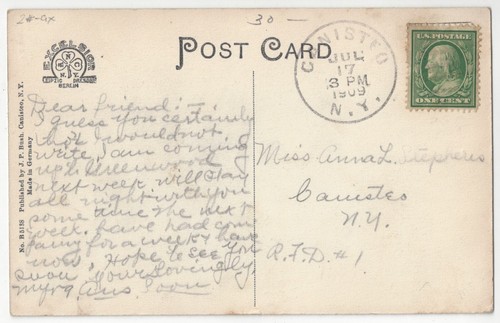 30-
POST CARD
EXCELSIOR
N.Y.
LEIPZIG DRESDEN
BERLIN
CANISTEO
JUL
17
3 PM
1909
N.Y.
U.S. POSTAGE
ONE CENT
No. R 5128 Published by J. P. Bush, Canisteo, N. Y.
Made in Germany
Dear friend:
I guess you certainly
thot I would not
write, I am coming
up to Greenwood
next week. Will stay
all night with you
some time the next
week. have had com
pany for a week & have
now. Hope to see you
soon. your Lovingly,
Soon
Miss Anna L. Stephens
Canisteo
N.Y.
R.F.D. #1